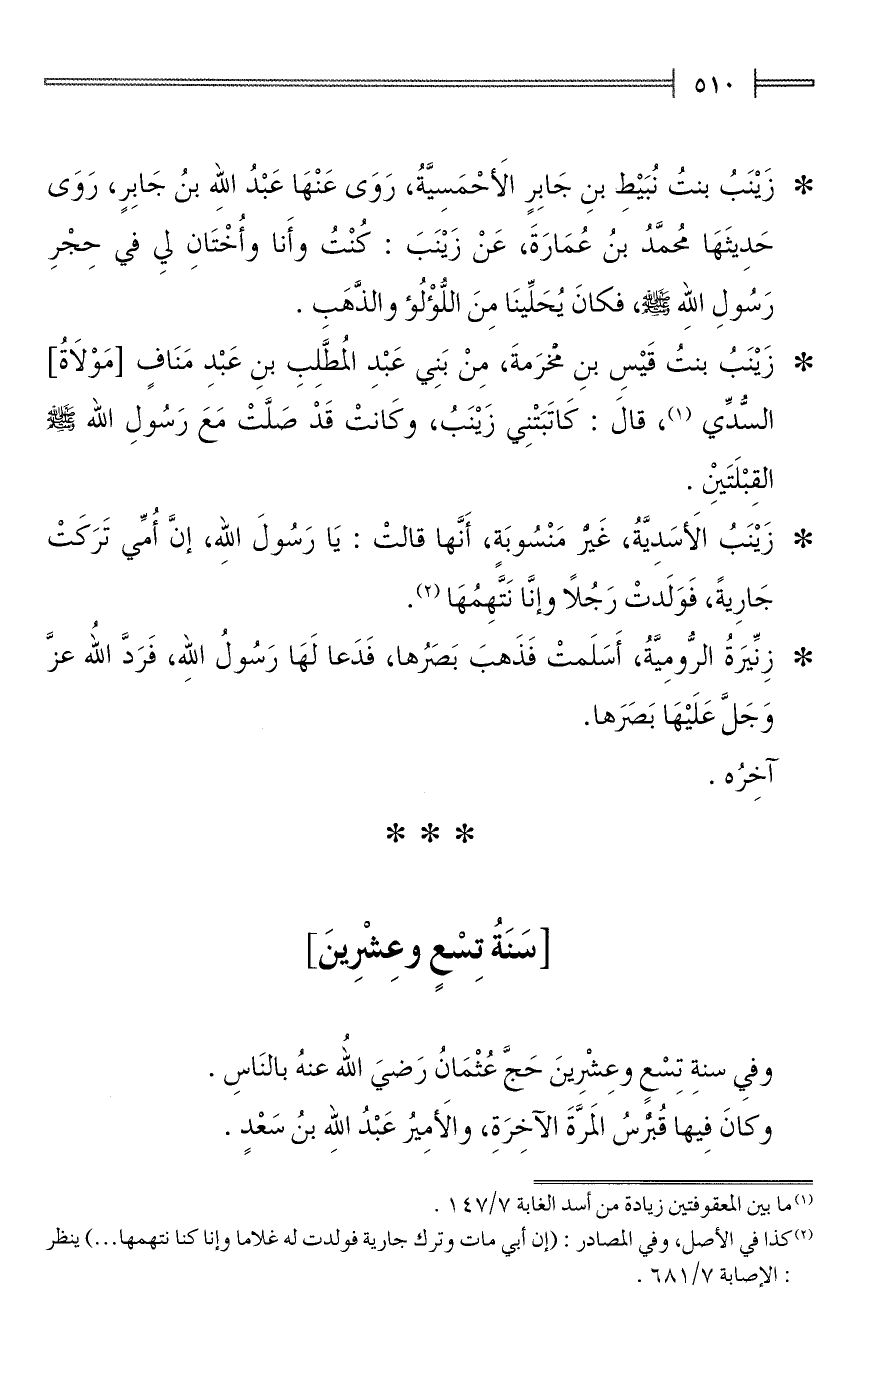 ٥١٠
* زَيْنَبُ بنتُ نُبَيْطِ بنِ جَابِرٍ الأَحْمَسِيَّةُ، رَوَى عَنْهَا عَبْدُ اللهِ بنُ جَابِرٍ، رَوَى
حَدِيثَهَا مُحمَّدُ بنُ عُمَارَةَ، عَنْ زَيْنَبَ : كُنْتُ وأَنا وأُخْتَانِ لِي في حِجْرِ
رَسُولِ اللهِ ﷺ، فكانَ يُحَلِّينَا مِنَ اللُّؤْلُؤِ والذَّهَبِ .
* زَيْنَبُ بنتُ قَيْسِ بنِ مَخْرَمةَ، مِنْ بَنِي عَبْدِ الُمطَّلِبِ بنِ عَبْدِ مَنَافٍ [مَوْلَاةُ]
السُّدِّي (١)، قالَ : كَاتَبَتْنِي زَيْنَبُ، وكَانتْ قَدْ صَلَّتْ مَعَ رَسُولِ اللهِ ﷺ
القِبْلَتَيْنْ .
* زَيْنَبُ الأَسَدِيَّةُ، غَيْرُ مَنْسُوبَةٍ، أَنَّها قالتْ : يَا رَسُولَ اللهِ، إنَّ أُمِّي تَرَكَتْ
جَارِيةً، فَوَلَدتْ رَجُلًا وإنَّا نَتَّهِمُهَا (٢).
* زِنِّيرَةُ الرُّومِيَّةُ، أَسْلَمتْ فَذَهبَ بَصَرُها، فَدَعا لَهَا رَسُولُ اللهِ، فَرَدَّ اللهُ عزَّ
وَجَلَّ عَلَيْهَا بَصَرَها.
آخِرُه .
* * *
[سَنَةُ تِسْعٍ وعِشْرِينَ]
وفي سنةِ تِسْعٍ وعِشْرِينَ حَجَّ عُثْمَانُ رَضيَ اللهُ عنهُ بالنَاسِ .
وكانَ فِيها قُبْرُسُ المَرَّةَ الآخِرَةِ، والأَمِيرُ عَبْدُ اللهِ بنُ سَعْدٍ .
(١) ما بين المعقوفتين زيادة من أسد الغابة ١٤٧/٧ .
(٢) كذا في الأصل، وفي المصادر : (إن أبي مات وترك جارية فولدت له غلاما وإنا كنا نتهمها...) ينظر
: الإصابة ٦٨١/٧ .